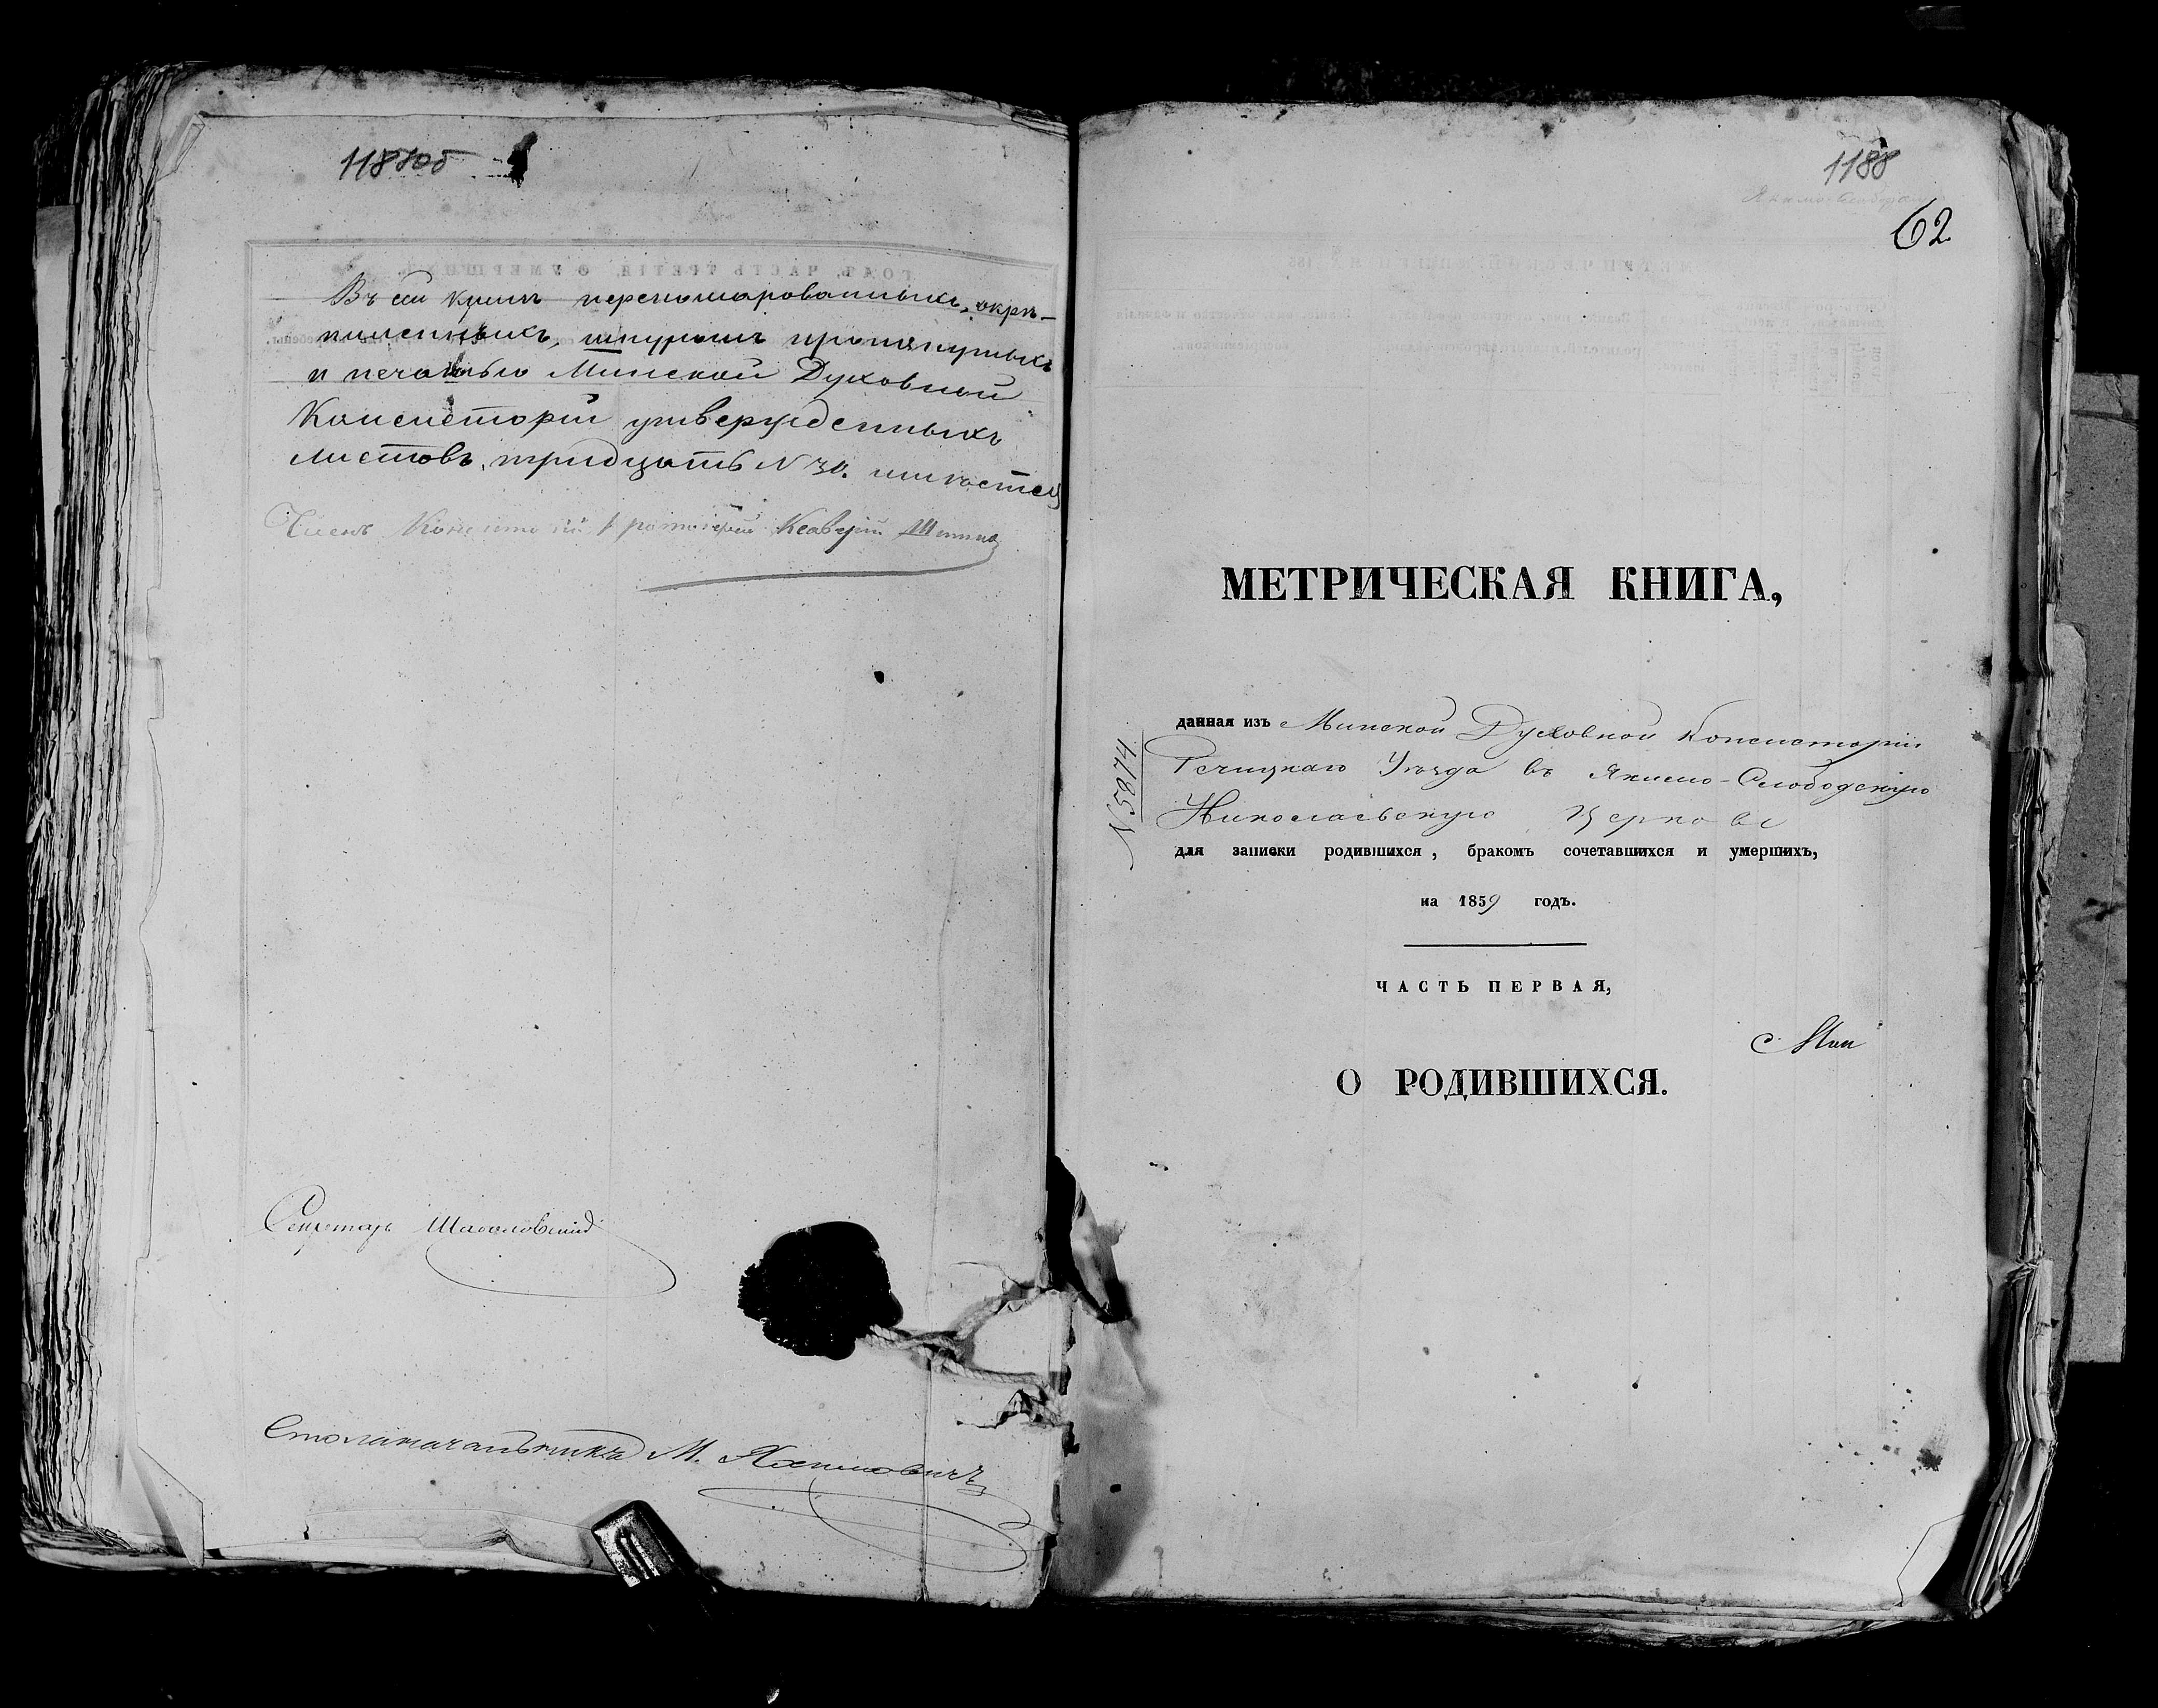 1187об
Въ сей книгѣ перенумерованныхъ, скрѣ-
пленныхъ, шнуромъ протянутыхъ
и печатью Минской Духовной
Консисторіи утвержденныхъ
листовъ, тридцать N 30.
Членъ Консисторіи Протоіерей Ксаверій
Секретарь
Столоначальникъ М.
1188
62
МЕТРИЧЕСКАЯ КНИГА,
данная изъ Минской Духовной Консисторіи
Речицкаго Уѣзда въ Якимо-Слободскую
Николаевскую Церковь
N 5874
для записки родившихся, бракомъ сочетавшихся и умершихъ,
на 1859 годъ.
ЧАСТЬ ПЕРВАЯ,
О РОДИВШИХСЯ.